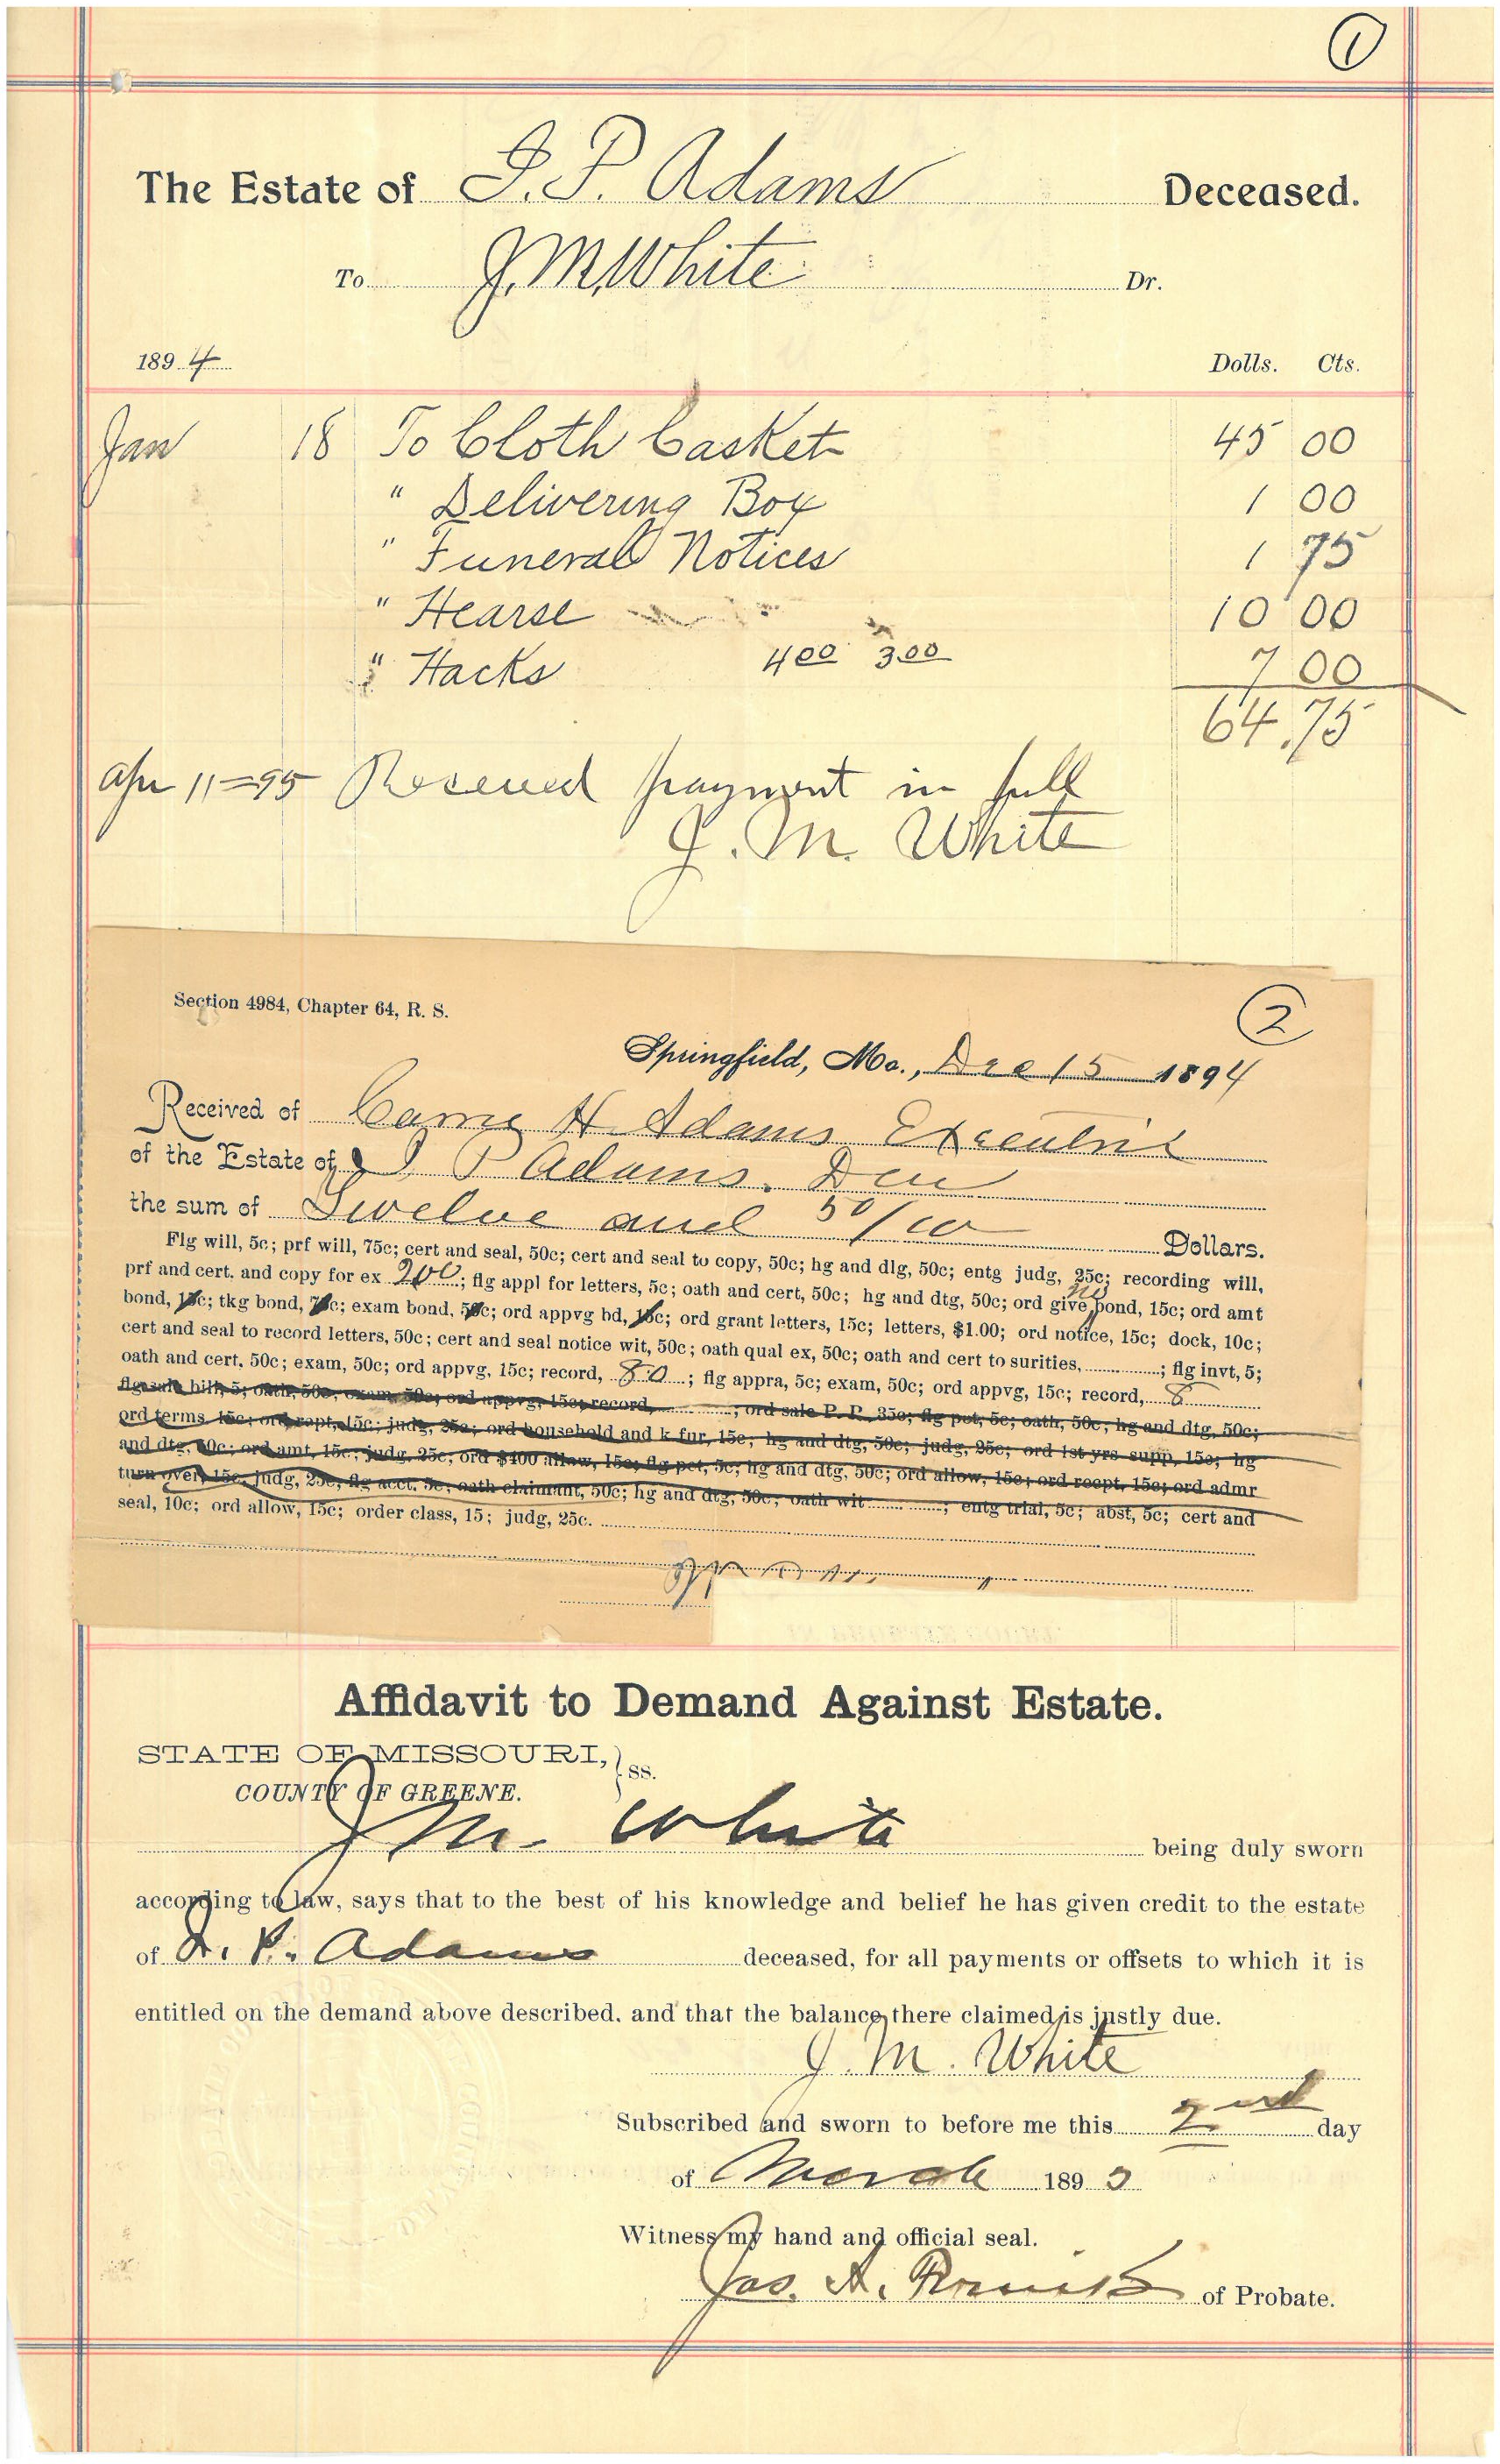 1
The Estate of J. P. Adams Deceased.
To J. M. White Dr.
1894 Dolls. Cts.
Jan 18 To Cloth Casket 45 00
" Delivering Box 1 00
" Funeral Notices 1 75
" Hearse 10 00
" Hacks 4 00 3.00 7 00
64.75
Apr 11=95 Received payment in full
J. M. White
Section 4984, Chapter 64, R. S.
2
Springfield, Mo., Dec 15 1894
Received of Carrie H Adams Executrix
of the Estate of J P Adams. Dec
the sum of Twelve and 50/100 Dollars.
Flg will, 5c; prf will, 75c; cert and seal, 50c; cert and seal to copy, 50c; hg and dlg, 50c; entg judg, 25c; recording will,
prf and cert. and copy for ex 200; flg appl for letters, 5c; oath and cert, 50c; hg and dtg, 50c; ord give no bond, 15c; ord amt
bond, 15c; tkg bond, 75c; exam bond, 50c; ord appvg bd, 15c; ord grant letters, 15c; letters, $1.00; ord notice, 15c; dock, 10c;
cert and seal to record letters, 50c; cert and seal notice wit, 50c; oath qual ex, 50c; oath and cert to surities, ; flg invt, 5;
oath and cert, 50c; exam, 50c; ord appvg, 15c; record, 80; flg appra, 5c; exam, 50c; ord appvg, 15c; record,
flg sale bill, 5; oath, 50c, exam, 50c; ord appvg, 15c; record, ; ord sale P. P., 35c; flg pet, 5c; oath, 50c; hg and dtg, 50c;
ord terms, 15c; ord rept, 15c; judg, 25c; ord household and k fur, 15c; hg and dtg, 50c; judg, 25c; ord 1st yrs supp, 15c; hg
and dtg, 50c; ord amt, 15c; judg, 25c; ord $400 allow, 15c; flg pet, 5c; hg and dtg, 50c; ord allow, 15c; ord recpt, 15c; ord admr
turn over, 15c, judg, 25c, flg acct. 5c; oath claimant, 50c; hg and dtg, 50c; oath wit ; entg trial, 5c; abst, 5c; cert and
seal, 10c; ord allow, 15c; order class, 15; judg, 25c.
Affidavit to Demand Against Estate.
STATE OF MISSOURI, } ss.
COUNTY OF GREENE.
J M. White being duly sworn
according to law, says that to the best of his knowledge and belief he has given credit to the estate
of J. P. Adams deceased, for all payments or offsets to which it is
entitled on the demand above described. and that the balance there claimed is justly due.
J. M. White
Subscribed and sworn to before me this 2nd day
of March 1895
Witness my hand and official seal.
Jas. A. of Probate.